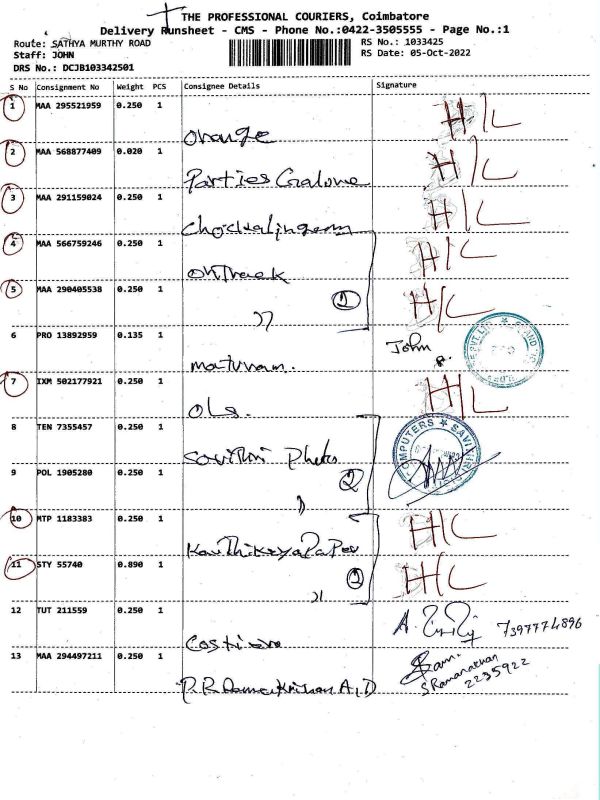 THE PROFESSIONAL COURIERS, Coimbatore
Delivery Runsheet - CMS - Phone No.:0422-3505555 - Page No.:1
Route: SATHYA MURTHY ROAD
RS No.: 1033425
Staff: JOHN
RS Date: 05-Oct-2022
DRS No.: DCJB103342501
S No Consignment No Weight PCS Consignee Details Signature
1 MAA 295521959 0.250 1
Orange H/L
2 MAA 568877409 0.020 1
Parties H/L
3 MAA 291159024 0.250 1
Chockalingam H/L
4 MAA 566759246 0.250 1
Ontrack H/C
5 MAA 290405538 0.250 1
〃 2 H/C
6 PRO 13892959 0.135 1
John
7 IXM 502177921 0.250 1
OLS. H/L
8 TEN 7355457 0.250 1
Savithri Photos
COMPUTERS ★ SAVI
9 POL 1905280 0.250 1
〃 2
10 MTP 1183383 0.250 1
Karthikeya Paper H/C
11 STY 55740 0.890 1
〃 2 H/C
12 TUT 211559 0.250 1
A. 7397774896
13 MAA 294497211 0.250 1
P.R Ramakrishnan A,D
S Ramanathan
2235922